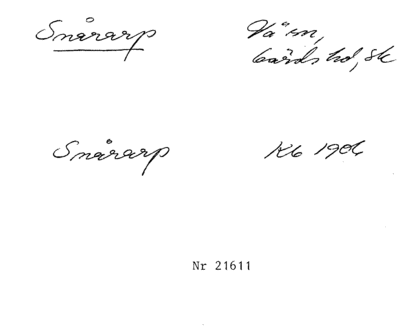 Snårarp Vä sn,
Gärds hd, Sk
Snårarp Kb 1906
Nr 21611